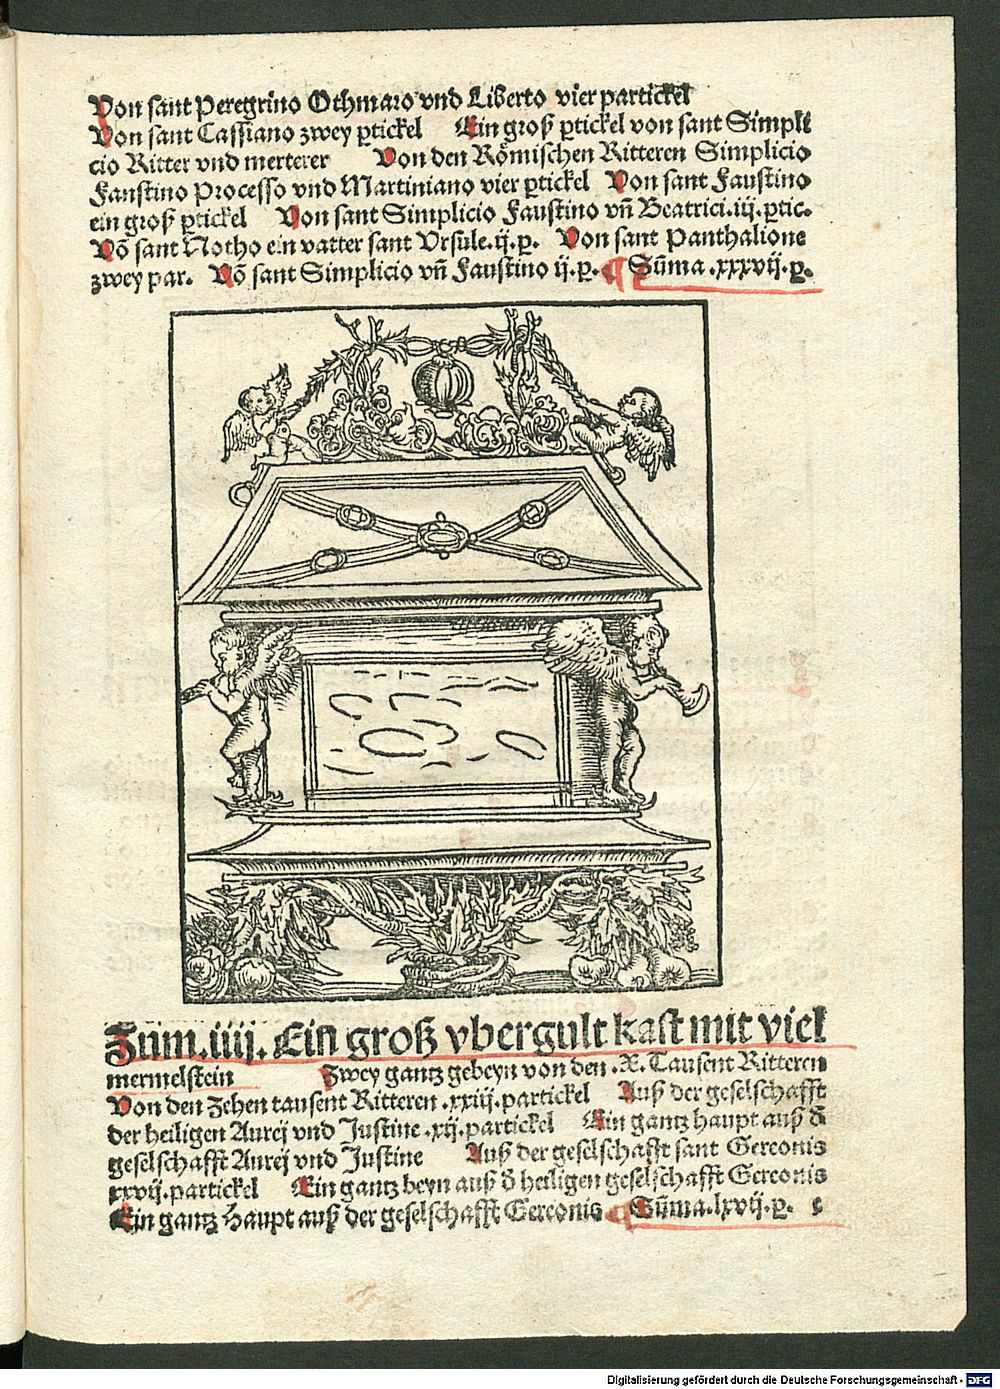 Von sant Peregrino Othmaro vnd Liberto vier partickel
Von sant Cassiano zwey ꝑtickel Ein groß ꝑtickel von sant Simpli
cio Ritter vnd merterer Von den Römischen Ritteren Simplicio
Faustino Processo vnd Martiniano vier ꝑtickel Von sant Faustino
ein groß ꝑtickel Von sant Simplicio Faustino vn̄ Beatrici.iij.ꝑtic.
Võ sant Notho ein vatter sant Vrsule.ij.ꝑ. Von sant Panthalione
zwey par. Võ sant Simplicio vn̄ Faustino ij.ꝑ. ¶ Sum̄a .xxxvij.ꝑ.
Zum .iiij. Ein groß vbergult kast mit viel
mermelstein Zwey gantz gebeyn von den .X. Tausent Ritteren
Von den Zehen tausent Ritteren .xxiij.partickel Auß der geselschafft
der heiligen Aurej vnd Justine .xij.partickel Ein gantz haupt auß d̄
geselschafft Aurej vnd Justine Auß der geselschafft sant Gereonis
xxvij.partickel Ein gantz beyn auß d̄ heiligen geselschafft Gereonis
Ein gantz Haupt auß der geselschafft Gereonis ¶ Sum̄a.lxvij.ꝑ.
Digitalisierung gefördert durch die Deutsche Forschungsgemeinschaft - DFG